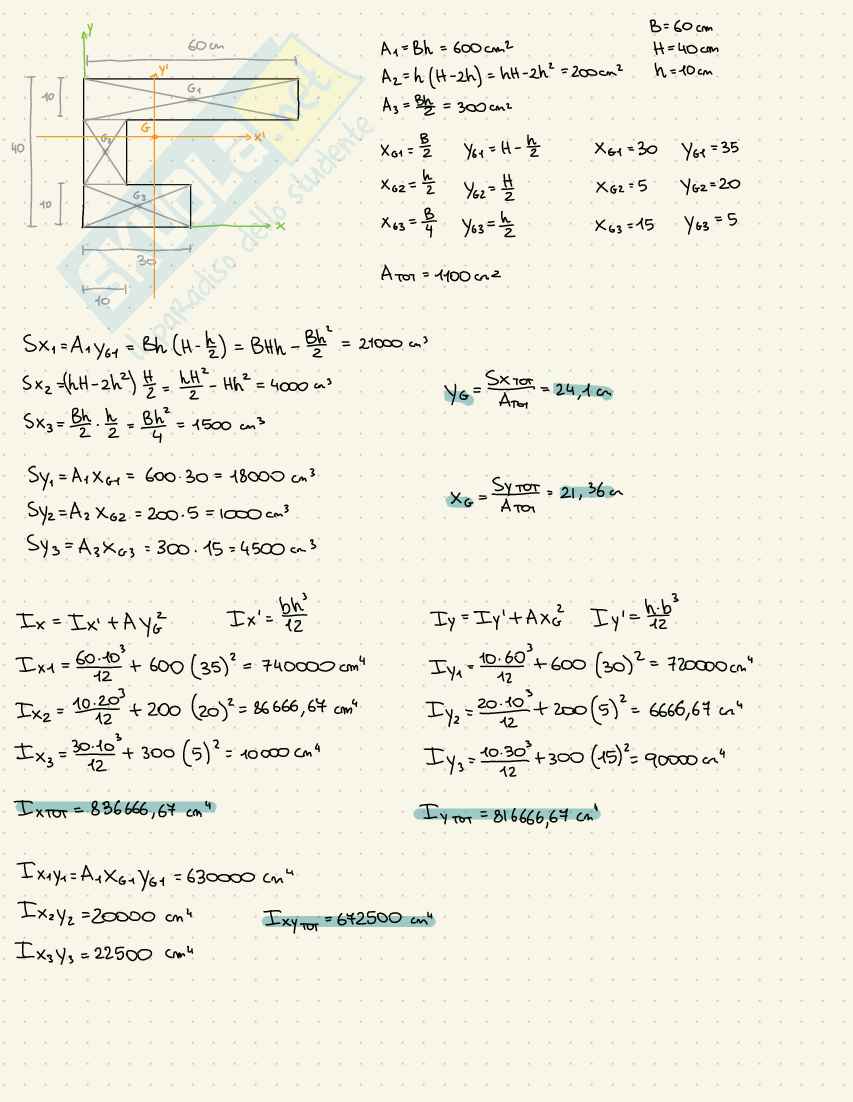 y
60 cm
y'
10
G1
40
G
G2
x'
10
G3
x
30
10
SKUOLA.net
il paradiso dello studente
A1 = Bh = 600 cm²
A2 = h (H-2h) = hH-2h² = 200 cm²
A3 = Bh/2 = 300 cm²
B = 60 cm
H = 40 cm
h = 10 cm
xG1 = B/2 yG1 = H - h/2 xG1 = 30 yG1 = 35
xG2 = h/2 yG2 = H/2 xG2 = 5 yG2 = 20
xG3 = B/4 yG3 = h/2 xG3 = 15 yG3 = 5
ATOT = 1100 cm²
Sx1 = A1 yG1 = Bh (H - h/2) = BHh - Bh²/2 = 21000 cm³
Sx2 = (hH-2h²) H/2 = hH²/2 - Hh² = 4000 cm³
Sx3 = Bh/2 · h/2 = Bh²/4 = 1500 cm³
yG = SxTOT/ATOT = 24,1 cm
Sy1 = A1 xG1 = 600·30 = 18000 cm³
Sy2 = A2 xG2 = 200·5 = 1000 cm³
Sy3 = A3 xG3 = 300·15 = 4500 cm³
xG = SyTOT/ATOT = 21,36 cm
Ix = Ix' + A yG² Ix' = bh³/12
Ix1 = 60·10³/12 + 600 (35)² = 740000 cm⁴
Ix2 = 10·20³/12 + 200 (20)² = 86666,67 cm⁴
Ix3 = 30·10³/12 + 300 (5)² = 10000 cm⁴
IxTOT = 836666,67 cm⁴
Iy = Iy' + A xG² Iy' = h·b³/12
Iy1 = 10·60³/12 + 600 (30)² = 720000 cm⁴
Iy2 = 20·10³/12 + 200 (5)² = 6666,67 cm⁴
Iy3 = 10·30³/12 + 300 (15)² = 90000 cm⁴
IyTOT = 816666,67 cm⁴
Ix1y1 = A1 xG1 yG1 = 630000 cm⁴
Ix2y2 = 20000 cm⁴
Ix3y3 = 22500 cm⁴
IxyTOT = 672500 cm⁴